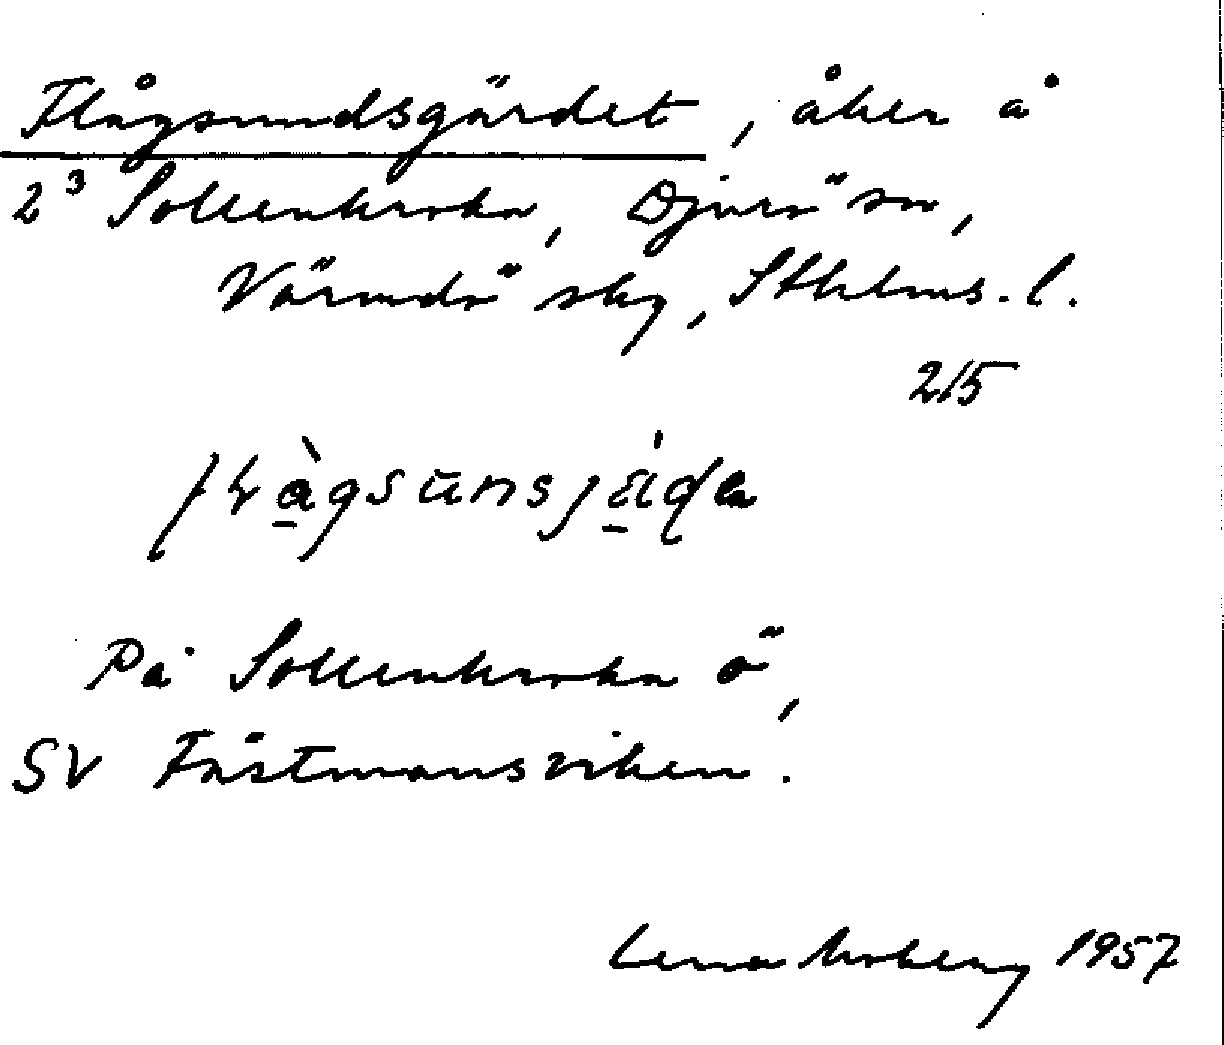 Flågsundsgärdet, åker å
2³ Sollenkroka, Djurö sn,
Värmdö skg, Sthlms. l.
215
På Sollenkroka ö,
SV Fästmansviken.
Lena Moberg 1957